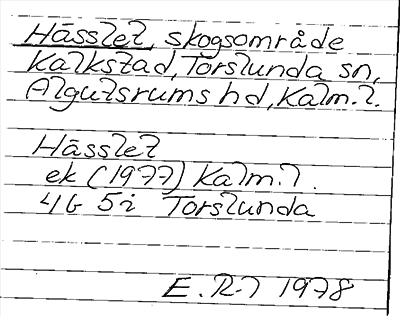 Hässlet, skogsområde
Kalkstad, Torslunda sn,
Algutsrums hd, Kalm. l.
Hässlet
ek (1977) Kalm. l.
4G 5i Torslunda
E. R-l 1978